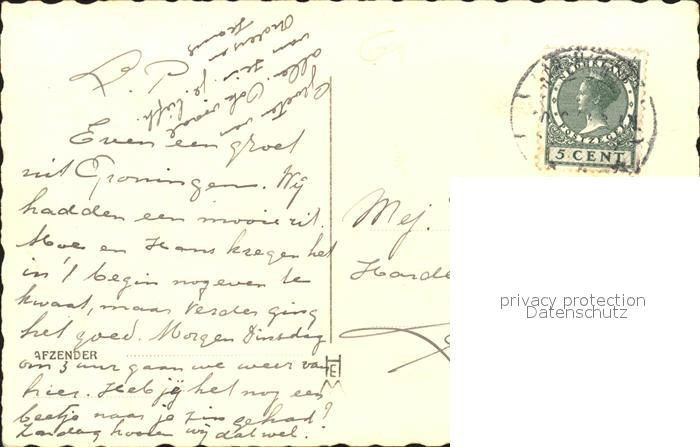 L. P.
Groeten van
allen hier. Ook
van je
Even een groet
uit Groningen. Wij
hadden een mooie rit.
Moe en Hans kregen het
in 't begin nog even te
kwaad, maar verder ging
het goed. Morgen Dinsdag
AFZENDER
om 3 uur gaan we weer van
hier. Heb jij het nog een
beetje naar je zin gehad?
Zondag horen wij dat wel.
NEDERLAND
POSTZEGEL
5 CENT
Mej.
Harde
HEM
privacy protection
Datenschutz